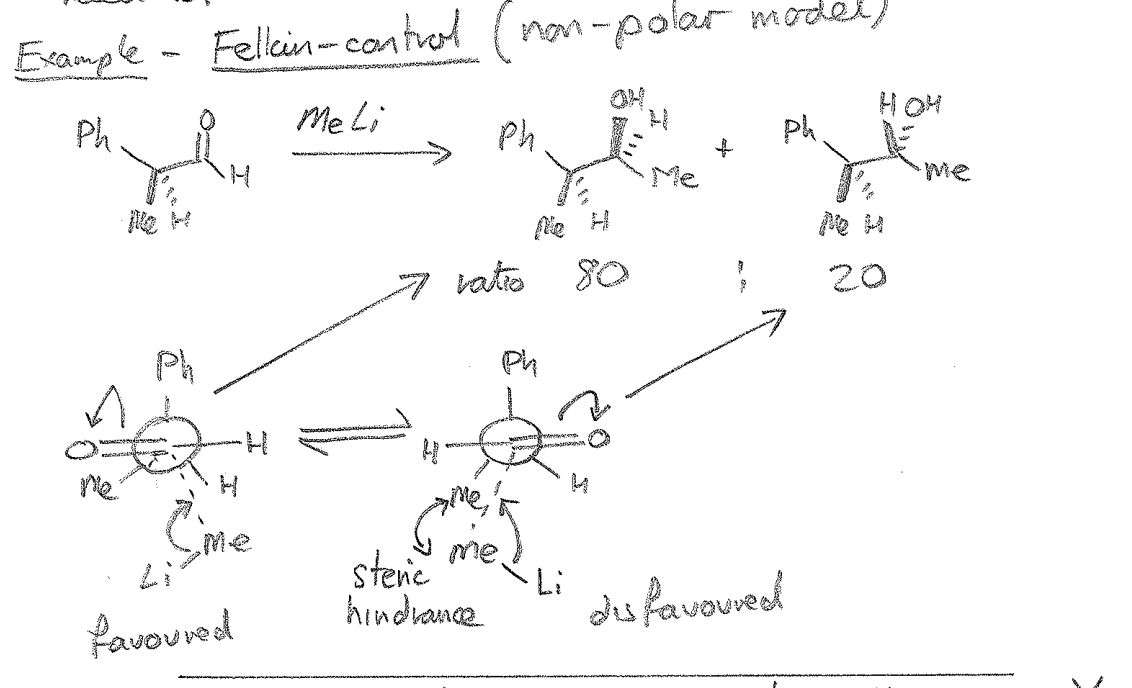 Example - Felkin-control (non-polar model)
Ph O H Me H
MeLi
Ph OH H Me Me H
+
Ph H OH Me Me H
ratio 80 : 20
Ph O H Me H Me Li
favoured
Ph H O Me H Me Li
steric hindrance
disfavoured